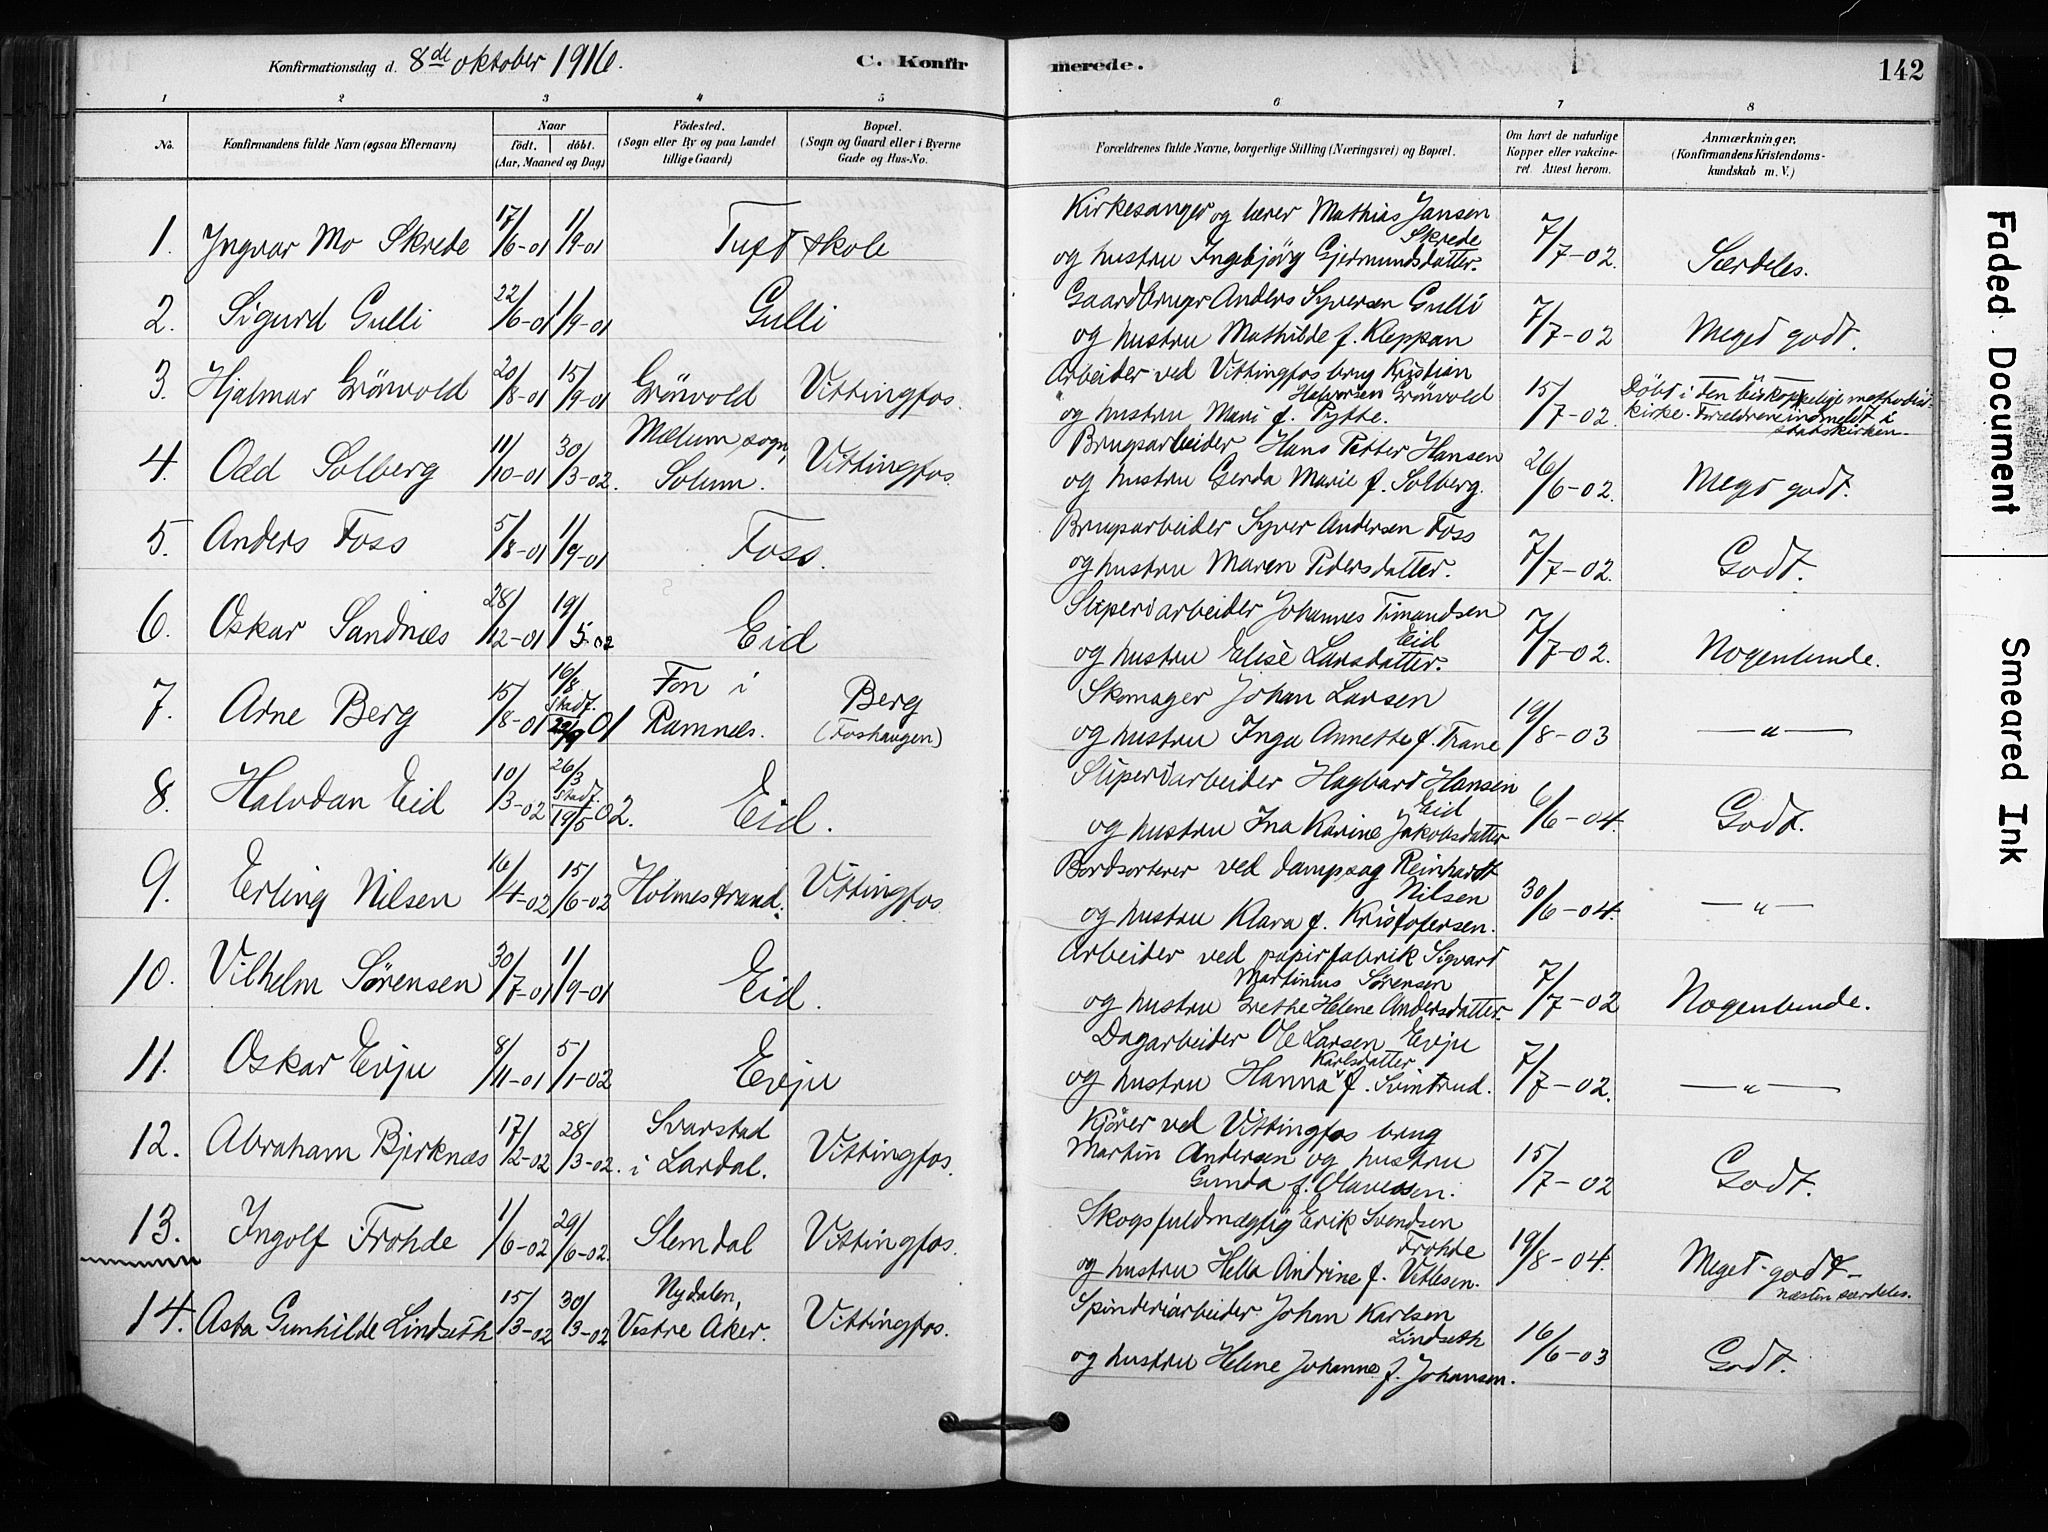 Konfirmationsdag d. 8de oktober 1916. C. Konfirmerede. 142
1 2 3 4 5 6 7 8
No. Konfirmandens fulde Navn (ogsaa Efternavn) Naar født. døbt. (Aar, Maaned og Dag) Fødested. (Sogn eller By og paa Landet tillige Gaard) Bopæl. (Sogn og Gaard eller i Byerne Gade og Hus-No. Forældrenes fulde Navne, borgerlige Stilling (Næringsvei) og Bopæl. Om havt de naturlige Kopper eller vakcineret. Attest herom. Anmærkninger. (Konfirmandens Kristendomskundskab m. V.)
1. Ingvar Mo Skrede 17/6-01 1/9-01 Tuft skole Kirkesanger og lærer Mathias Jansen Skrede
og hustru Ingebjörg Gjermundsdatter. 7/7-02. Særdeles.
2. Sigurd Gulli 22/6-01 1/9-01 Gulli Gaardbruger Anders Syversen Gulli
og hustru Mathilde f. Kleppan 7/7-02 Meget godt.
3. Hjalmar Grönvold 20/8-01 15/9-01 Grönvold Vittingfos. Arbeider ved Vittingfos brug Kristian
Halvorsen Grönvold
og hustru Mari f. Pytte. 15/7-02. Döbt i den biskoppelige methodistkirke. Forældrene indmeldt i statskirken.
4. Odd Solberg 11/10-01 30/3-02. Mælum sogn, Solum. Vittingfos. Brugsarbeider Hans Petter Hansen
og hustru Gerda Marie f. Solberg. 26/6-02. Meget godt.
5. Anders Foss 5/8-01 1/9-01 Foss. Brugsarbeider Syver Andersen Foss
og hustru Maren Pedersdatter. 7/7-02. Godt.
6. Oskar Sandnæs 28/12-01 19/5-02 Eid Sliperiarbeider Johannes Timandsen
Eid
og hustru Elise Larsdatter. 7/7-02. Nogenlunde.
7. Arne Berg 15/8-01 16/8 stadf. 29/9 01 Fon i Ramnes. Berg (Foshaugen) Skomager Johan Larsen
og hustru Inga Annette f. Trane 19/8-03 — " —
8. Halvdan Eid 10/3-02 26/3 stadf. 19/5 02. Eid. Sliperiarbeider Hagbard Hansen
Eid
og hustru Ina Karine Jakobsdatter 6/6-04. Godt.
9. Erling Nilsen 16/4-02 15/6-02 Holmestrand. Vittingfos. Bordsorterer ved dampsag Reinhardt
Nilsen
og hustru Klara f. Kristofersen. 30/6-04. — " —
10. Vilhelm Sørensen 30/7-01 1/9-01 Eid. Arbeider ved papirfabrik Sigvard
Martinius Sørensen
og hustru Grethe Helene Andersdatter. 7/7-02 Nogenlunde.
11. Oskar Evju 8/11-01 5/1-02 Evju Dagarbeider Ole Larsen Evju
Karlsdatter
og hustru Hanna f. Svintrud. 7/7-02. — " —
12. Abraham Bjerknæs 17/2-02 28/3-02. Svarstad i Lardal. Vittingfos. Kjörer ved Vittingfos brug
Martin Andersen og hustru
Gunda f. Olavesen. 15/7-02 Godt.
13. Ingolf Frohde 1/6-02 29/6-02. Slemdal Vittingfos. Skogsfuldmægtig Erik Svendsen
Frohde
og hustru Hella Andrine f. Vetlesen. 19/8-04. Meget godt næsten særdeles.
14. Asta Gunhilde Lindseth 15/3-02 30/3-02 Nydalen, Vestre Aker. Vittingfos. Spinderiarbeider Johan Karlsen
Lindseth
og hustru Helene Johanne f. Johansen. 16/6-03 Godt.
Faded Document
Smeared Ink